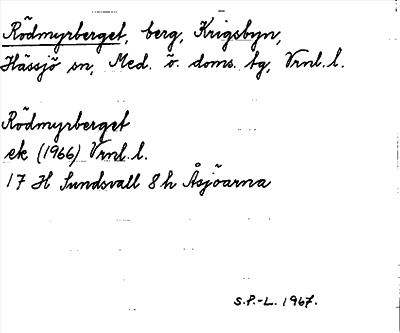 Rödmyrberget, berg, Krigsbyn,
Hässjö sn, Med. ö. doms. tg, Vrnl. l.
Rödmyrberget
ek (1966) Vrnl. l.
17 H Sundsvall 8 h Åsjöarna
S.P.-L. 1967.